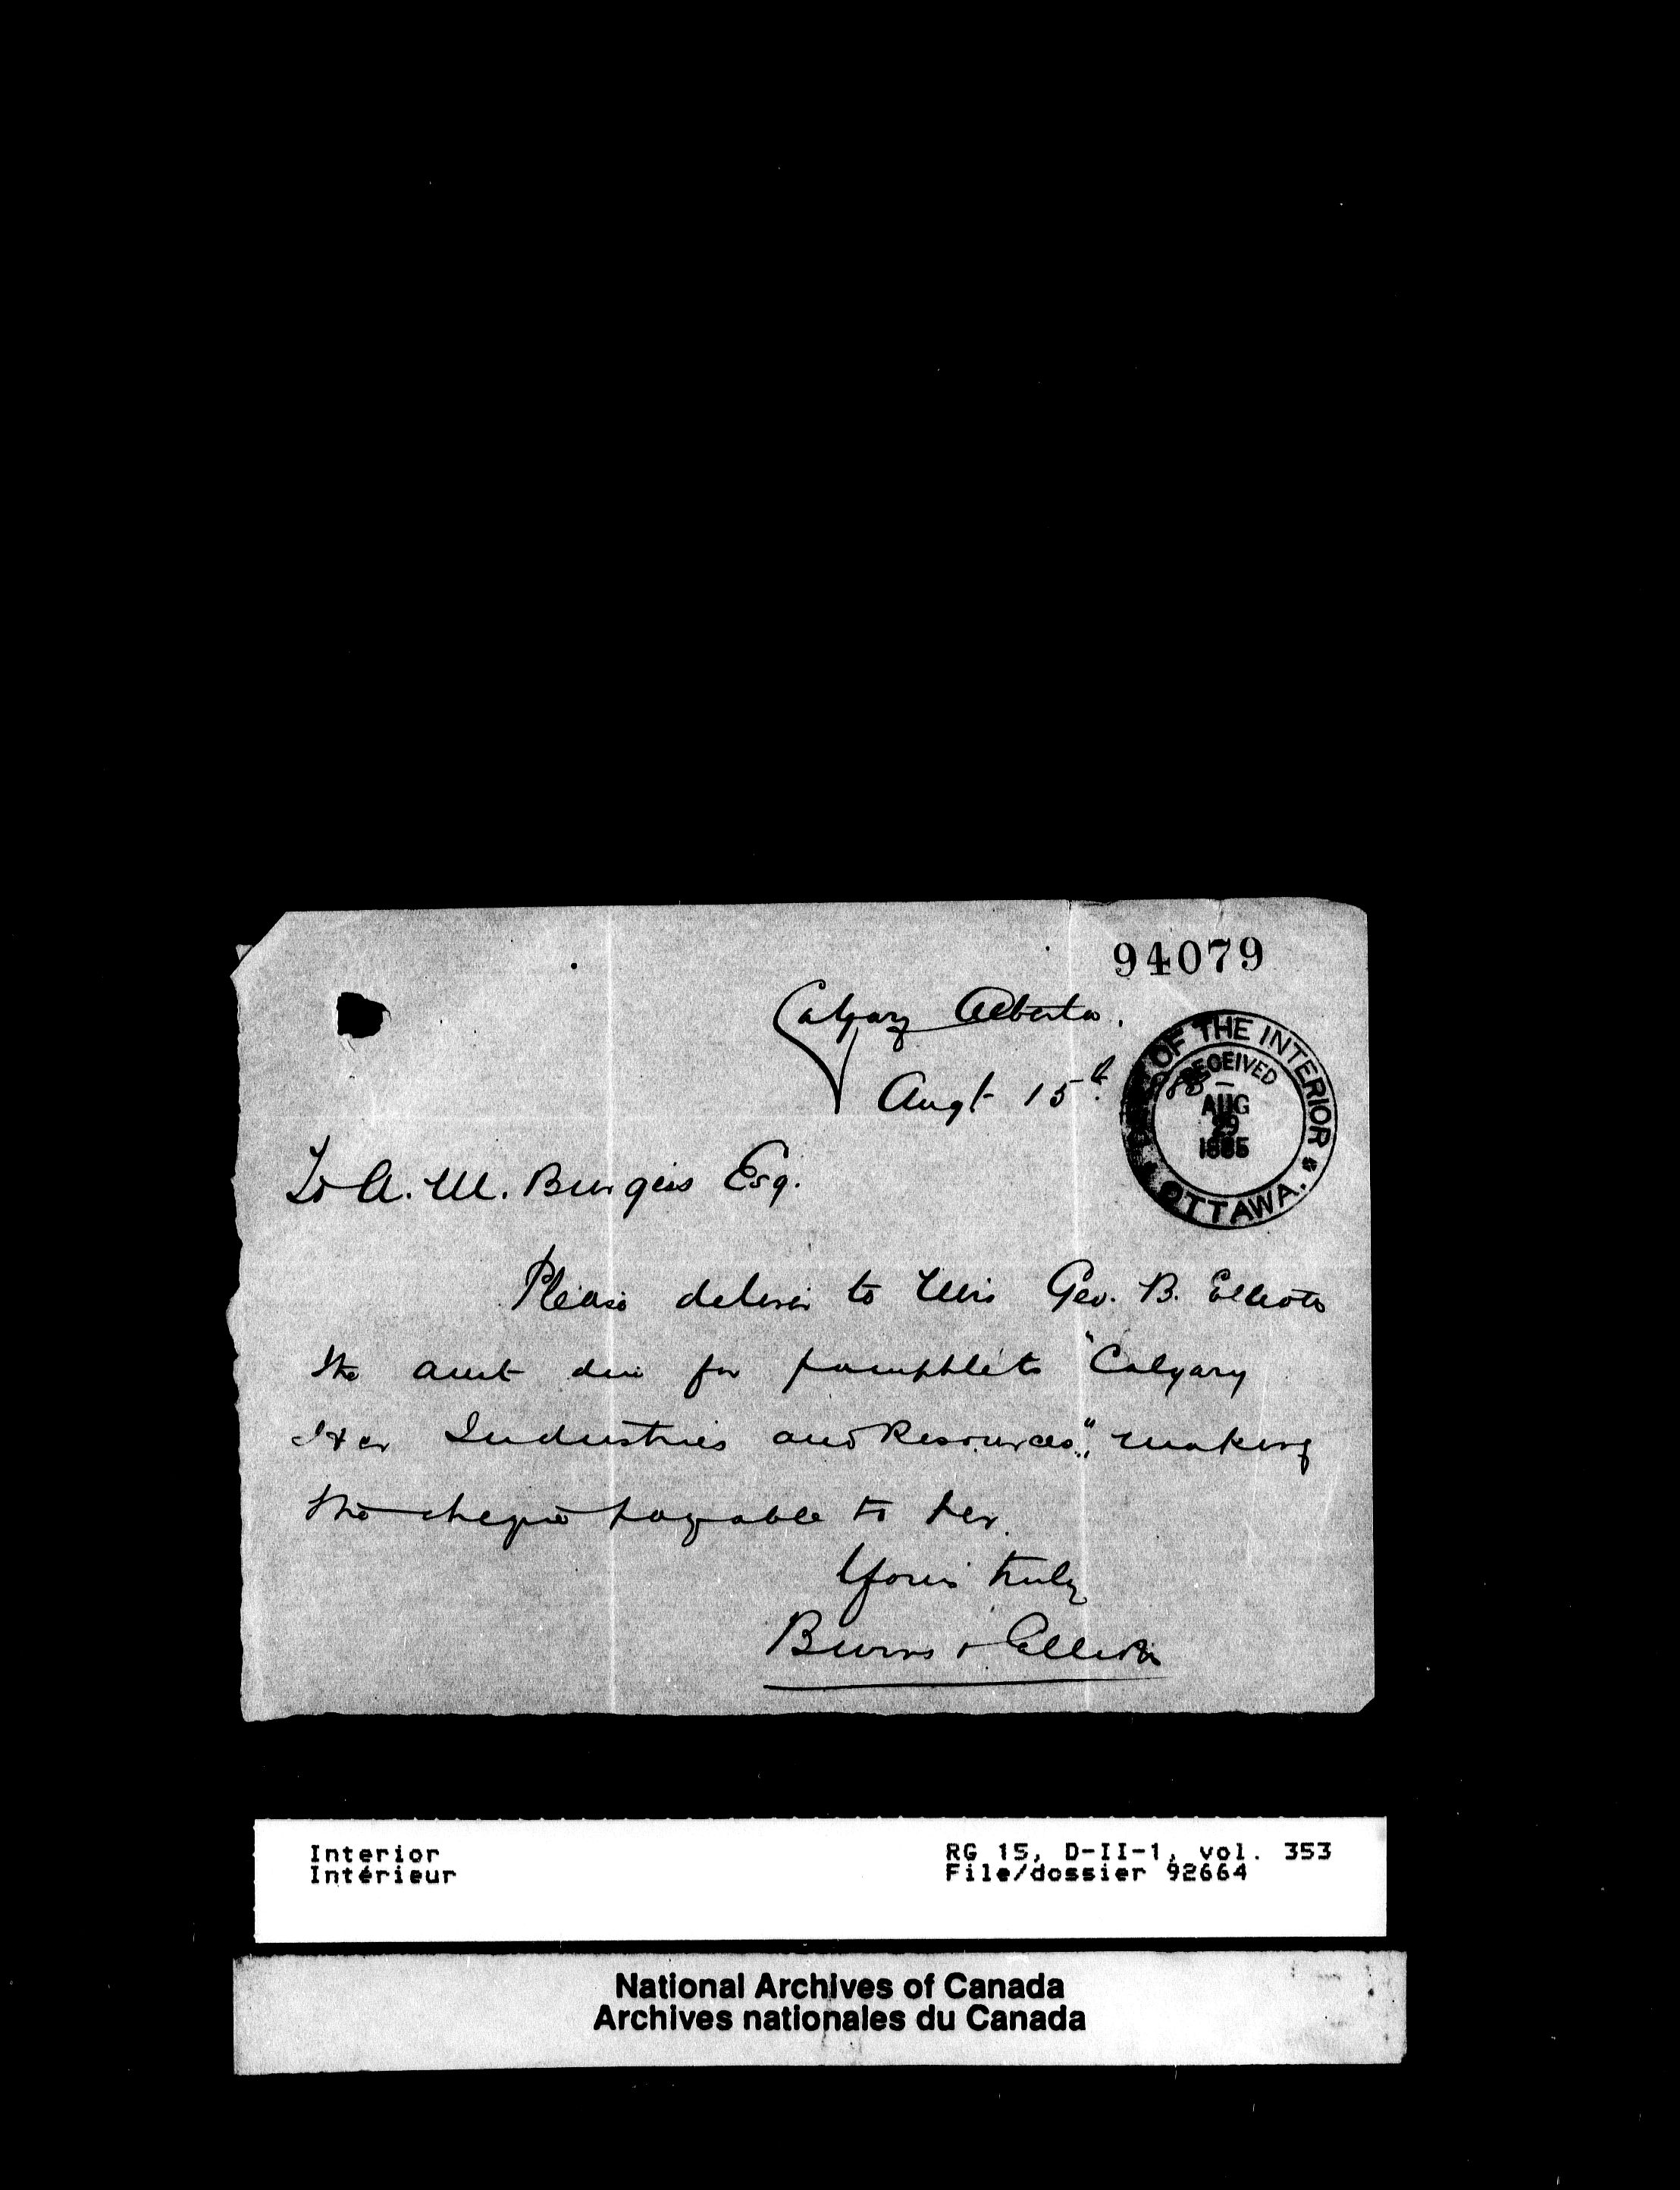 94079
Calgary Alberta.
Augt 15th 1885
DEPT. OF THE INTERIOR
RECEIVED
AUG
29
1885
OTTAWA.
To A. M. Burgess Esq.
Please deliver to Mrs Geo. B. Elliott
the amt due for pamphlets "Calgary
Her Industries and Resources", making
the cheque payable to her.
Yours truly
Burns & Elliott
Interior
Intérieur
RG 15, D-II-1, vol. 353
File/dossier 92664
National Archives of Canada
Archives nationales du Canada